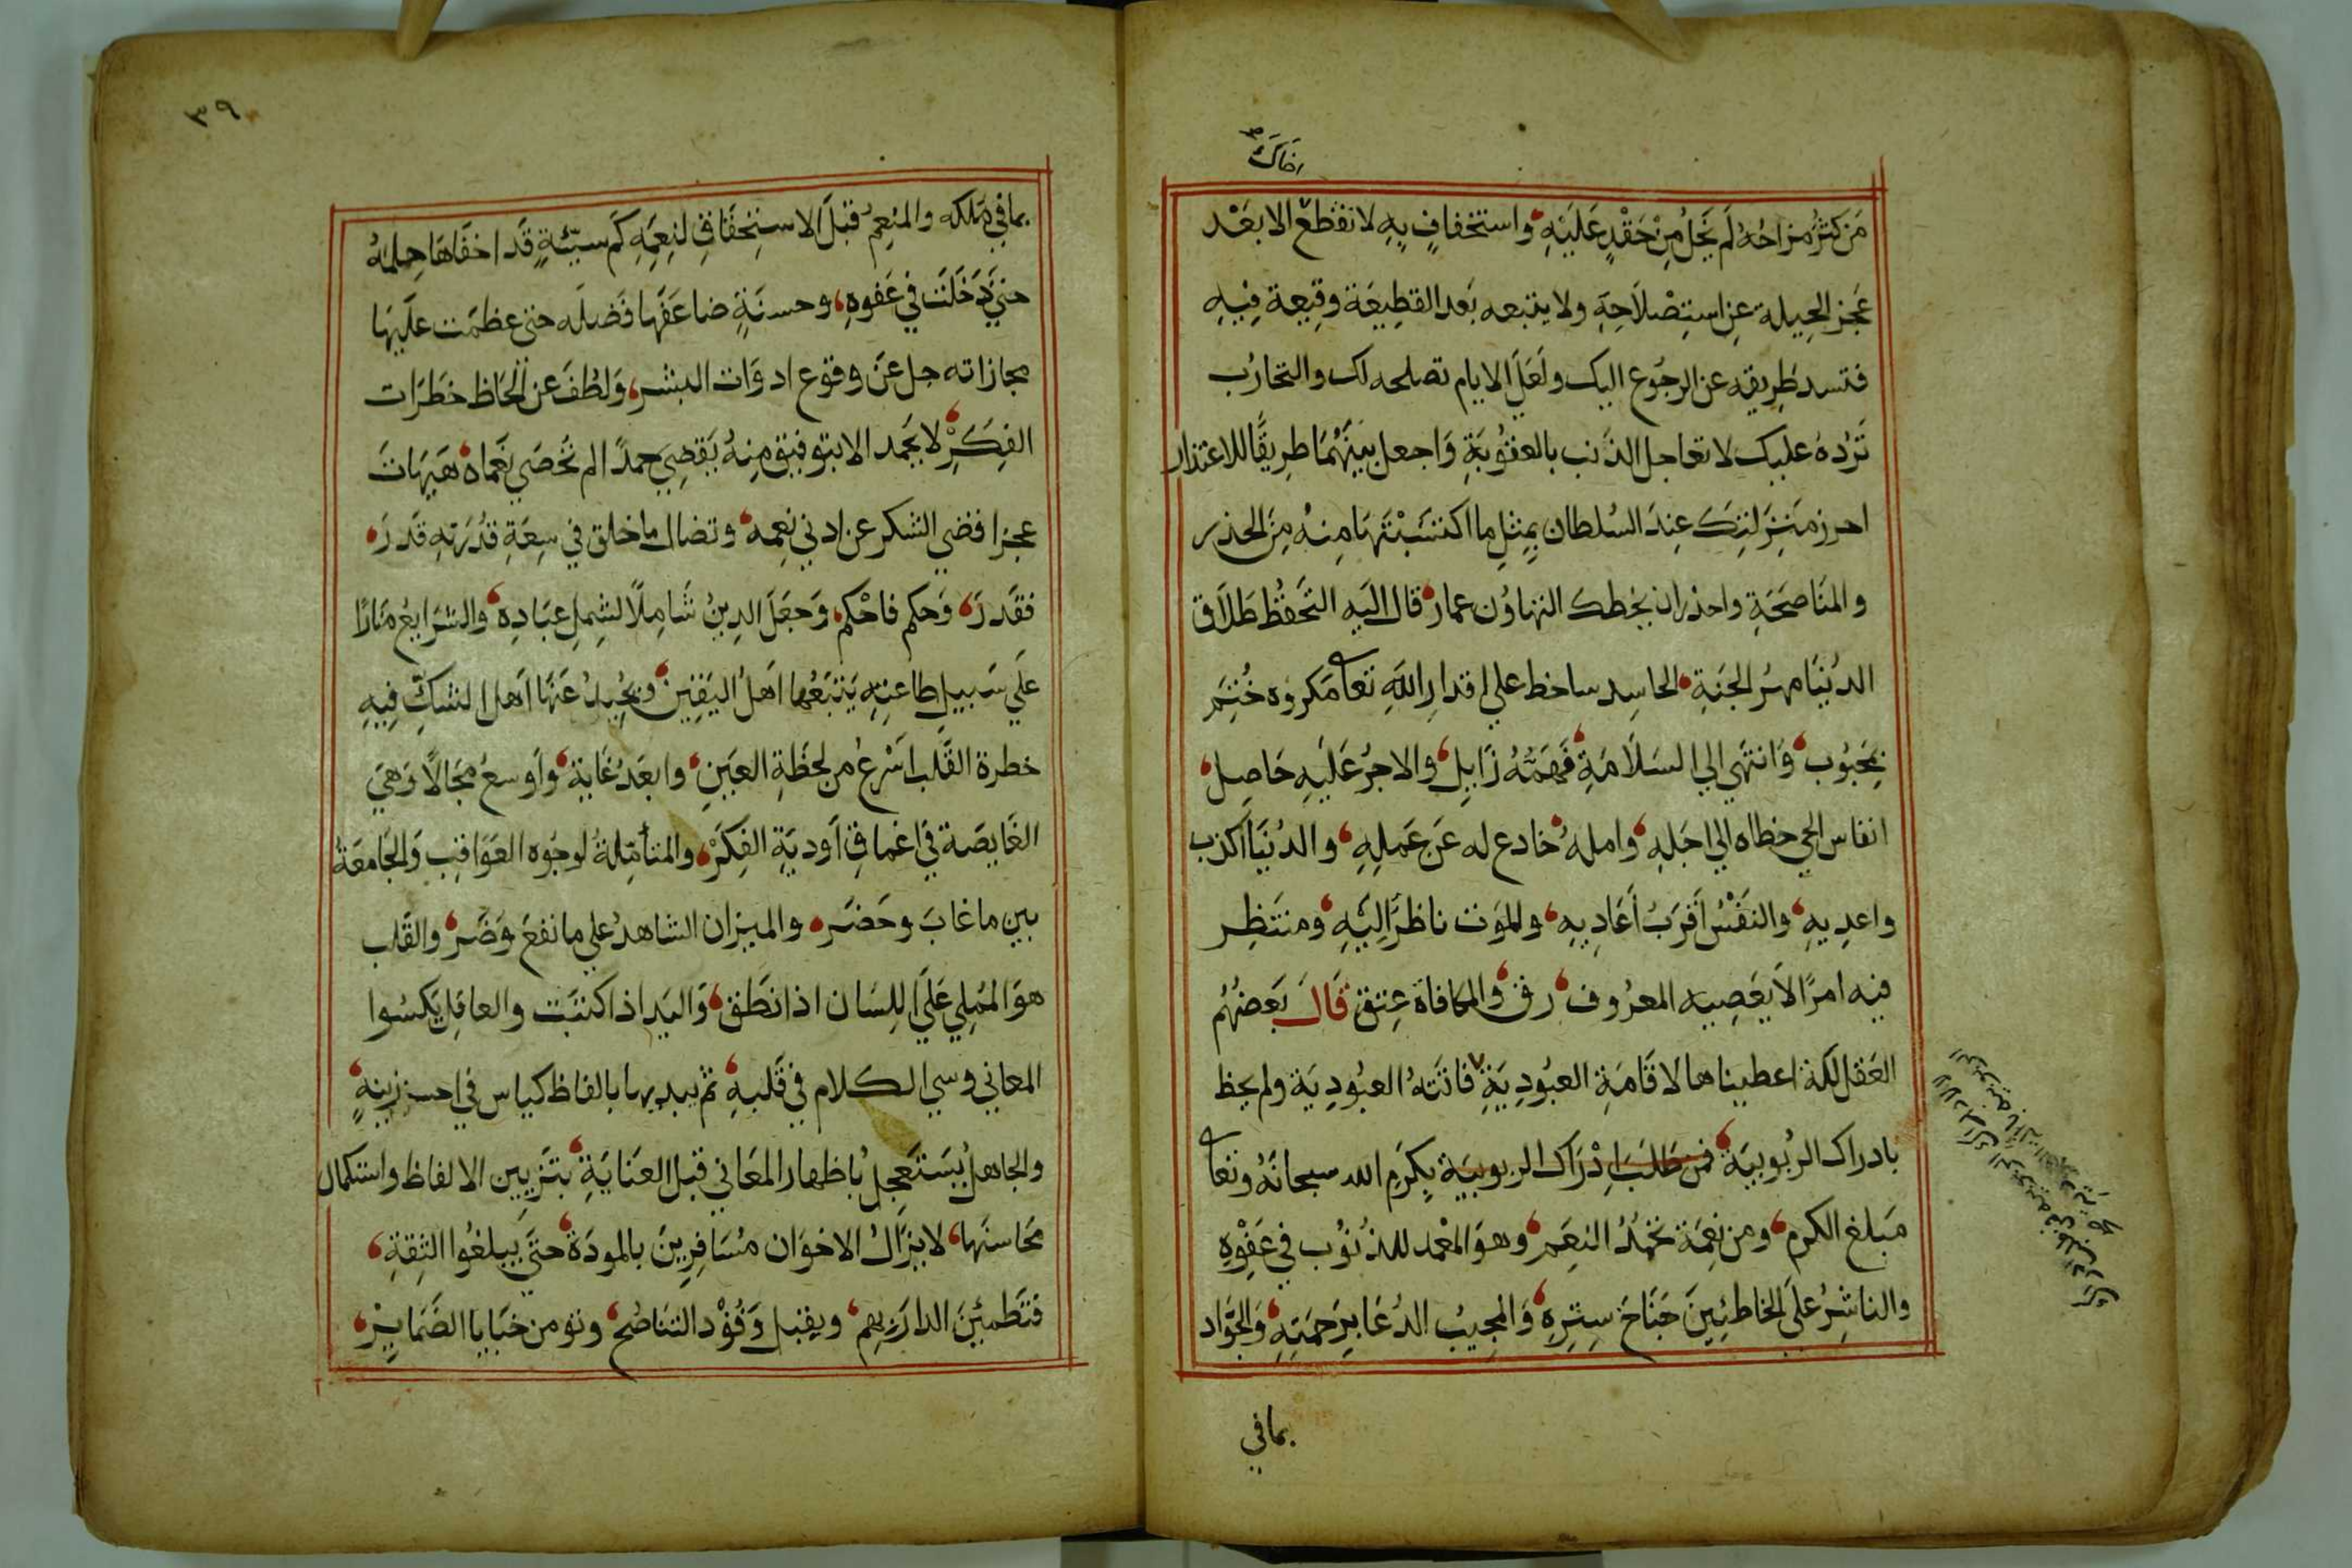 اخاك
مَن كَثُرَ مزاحُه لَم يَخلُ مِنْ حَقْدٍ عَلَيْهِ، واستخفافٍ بِهِ لا تقطع الا بَعْد
عَجز الحِيلة عِن استِصْلاحِهِ ولا يتبعه بَعد القطِيعَة وقِيعة فِيهِ
فتسد طَرِيقه عن الرجُوع اليك ولَعَلّ الايام تصلحه لك والتجارُب
تَرُدهُ عليك لا تعاجل الذنب بالعقُوبَةِ وَاجعل بَينَهُمَا طرِيقًا للاعتذار
احرز مَنزِلتِكَ عِندَ السُلطان بِمِثلِ ما اكتسَبْتَهَا مِنهُ مِنَ الحذر
والمنَاصحَةِ واحذر ان يخطك التهاوُن عمار، قال اليه التَحَفظُ طَلَاق
الدُنيَا مهرُ الجَنةِ، الحاسِد ساخط علي اقدارِ اللهِ تعا مَكروه خُتِمَ
بِمَحْبُوب، وَانتَهي الي السَلَامَةِ، فَهَمّهُ زَايِل، والاجرُ عَلَيهِ حَاصِل،
انفاس الحي خطاه الي اجَلِهِ، وامله خادع له عَن عَمَلِهِ، والدُنيَا اكذب
واعدِيهِ، والنَفْسُ اَقرَبُ اَعَادِيهِ، والموَت ناظرٌ اِليَهِ، ومنتَظِر
فيه امرًا لا يَعصِيه المعرُوف، رق، والمكافاة عِتق قَالَ بَعضهُم
العَقل لَكة اعطيناها لاقَامَةِ العبُودِيَةِ فاتتهُ العبُودِيَة ولم يحظ
بادراك الربُوبيَة، فمن طَلَبَ اِدْرَاك الربوبِيَة بِكَرَمِ الله سبحانَهُ وتعا
مَبلغ الكرم، ومن نِعمَة تحمّدُ النِعَم، وهوَ المغمد للذُنُوب في عَفْوِهِ
والناشِرُ علَي الخاطئِينَ جَنَاحَ سِترِهِ، وَالمجِيبُ الدُعَا بِرَحمَتِهِ، وَالجَوَاد
بما في
٣٩
بما في مَلكه والمنعِم قبْلَ الاستِحقَاقِ لنِعَمِهِ كَم سيّئَةٍ قَد اخفَاهَا حِلمُهُ
حتيَ دَخَلَت في عَفوهِ، وحسنَةٍ ضاعَفَها فَضله حتي عظمَت علَيهَا
مجازاته جل عَن وقوع ادوَات البشر، وَلطُفَ عن اَلحَاظ خطَرَات
الفِكَرْ، لا يحمَد الا بتوفيق مِنهُ يَقضِي حمدًا الم تحصَي نعماه، هَيهَاتَ
عجزا قضي الشكر عن ادني نِعمِه، وتضال ما خلق في سِعَةِ قُدْرَتِهِ قَدرَ،
فقَدرَ، وَحكم فاحْكم، وَجعَلَ الدِينُ شَامِلًا لشِملِ عبَادِه، والشرَايعُ مَنَارًا
علَي سَبيلِ طاعتِهِ يَتبَعُها اَهلُ اليَقِينِ، ويَحِيدُ عَنهَا اَهل الشكّ فِيهِ
خطرة القَلب اَسْرعُ من لحظَةِ العَينِ، وابعَدُ غَاية، واَوسعُ مجَالًا وَهيَ
الغَايصَة في اَعماقِ اَوديَةِ الفِكَرْ، والمتأمِلةُ لوجُوه العوَاقِب وَالجَامعَةُ
بين ما غابَ وحَضر، والميزان الشاهدُ علي ما نفعَ وَضَر، والقَلب
هوَ المُملِي عَلَيَ اللِسَان اذا نطَق، وَاليَد اذا كتبَت والعاقِل يَكسُوا
المعاني وسي الكلام في قَلبهِ، ثم يبديها بالفاظ كياس في احسن زينهٍ،
والجاهلُ يُسَتعجِلُ باظهار المعَاني قبلَ العنَايَةِ، بتَزيين الالفاظ واستكمال
مَحَاسنَها، لا يزَالُ الاخوَان مُسَافِرِينَ بالمودَةِ، حتّيَ يبلغُوا الثِقةِ،
فتَطمئِنَ الدار بهم، ويقبل وَفُوْد التنَاصُح، وتومن خبَايا الضمَاير،